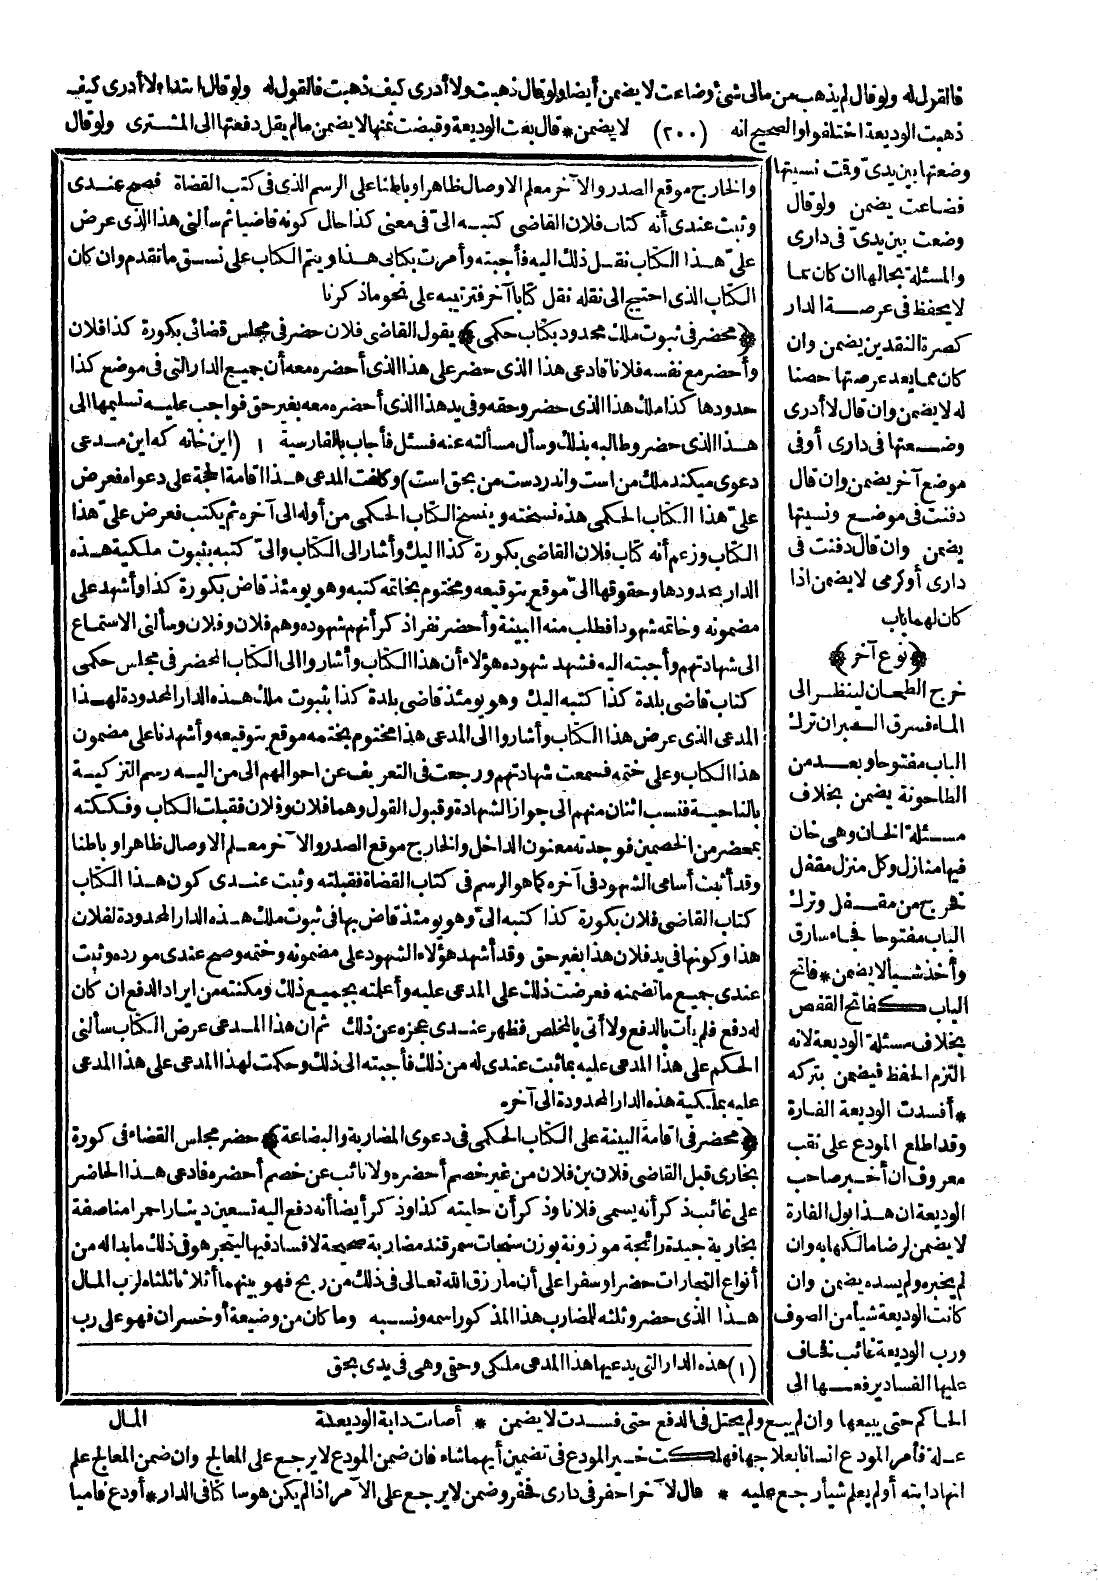 فالقول له ولو قال لم يذهب من مالى شئ وضاعت لا يضمن أيضا ولو قال ذهبت ولا أدرى كيف ذهبت فالقول له ولو قال ابتداء لا أدرى كيف
ذهبت الوديعة اختلفوا والصحيح انه (٢٠٠) لا يضمن * قال بعت الوديعة وقبضت ثمنها لا يضمن ما لم يقل دفعتها الى المشترى ولو قال
وضعتها بين يدىّ وقت نسيتها
فضاعت يضمن ولو قال
وضعت بين يدىّ فى دارى
والمسئلة بحالها ان كان مما
لا يحفظ فى عرصة الدار
كصرة النقدين يضمن وان
كان مما يعد عرصتها حصنا
له لا يضمن وان قال لا أدرى
وضعتها فى دارى أو فى
موضع آخر يضمن وان قال
دفنت فى موضع ونسيتها
يضمن وان قال دفنت فى
دارى أو كرمى لا يضمن اذا
كان لهما باب
﴿نوع آخر﴾
خرج الطحان لينظر الى
الماء فسرق الـ ان ترك
الباب مفتوحا وبعد من
الطاحونة يضمن بخلاف
مسئلة الخان وهى خان
فيها منازل وكل منزل مقفل
فخرج من مقفل وترك
الباب مفتوحا فجاء سارق
وأخذ شيأ لا يضمن * فاتح
الباب كفاتح القفص
بخلاف مسئلة الوديعة لانه
التزم الحفظ فيضمن بتركه
* أفسدت الوديعة الفارة
وقد اطلع المودع على نقب
معروف ان أخبر صاحب
الوديعة ان هذا بول الفارة
لا يضمن لرضا مالكها به وان
لم يخبره ولم يسده يضمن وان
كانت الوديعة شيأ من الصوف
ورب الوديعة غائب فخاف
عليها الفساد يرفعها الى
والخارج موقع الصدر والآخر معلم الاوصال ظاهرا وباطنا على الرسم الذى فى كتب القضاة فصح عندى
وثبت عندى أنه كتاب فلان القاضى كتبه الىّ فى معنى كذا حال كونه قاضيا ثم سألنى هذا الذى عرض
علىّ هذا الكتاب نقل ذلك اليه فأجبته وأمرت بكتابى هذا ويتم الكتاب على نسق ما تقدم وان كان
الكتاب الذى احتيج الى نقله نقل كتابا آخر فترتيبه على نحو ما ذكرنا
﴿محضر فى ثبوت ملك محدود بكتاب حكمى﴾ يقول القاضى فلان حضر فى مجلس قضائى بكورة كذا فلان
وأحضر مع نفسه فلانا فادعى هذا الذى حضر على هذا الذى أحضره معه أن جميع الدار التى فى موضع كذا
حدودها كذا ملك هذا الذى حضر وحقه وفى يد هذا الذى أحضره معه بغير حق فواجب عليه تسليمها الى
هذا الذى حضر وطالبه بذلك وسأل مسألته عنه فسئل فأجاب بالفارسية ١ (اين خانه كه اين مدعى
دعوى ميكند ملك من است واندر دست من بحق است) وكلفت المدعى هذا اقامة الحجة على دعواه فعرض
علىّ هذا الكتاب الحكمى هذه نسخته وينسخ الكتاب الحكمى من أوله الى آخره ثم يكتب فعرض علىّ هذا
الكتاب وزعم أنه كتاب فلان القاضى بكورة كذا اليك وأشار الى الكتاب والىّ كتبه بثبوت ملكية هذه
الدار بحدودها وحقوقها الىّ موقع بتوقيعه ومختوم بخاتمه كتبه وهو يومئذ قاض بكورة كذا وأشهد على
مضمونه وخاتمه شهودا فطلب منه البينة وأحضر نفرا ذكر أنهم شهوده وهم فلان وفلان وسألنى الاستماع
الى شهادتهم وأجبته اليه فشهد شهوده هؤلاء أن هذا الكتاب وأشاروا الى الكتاب المحضر فى مجلس حكمى
كتاب قاضى بلدة كذا كتبه اليك وهو يومئذ قاضى بلدة كذا بثبوت ملك هذه الدار المحدودة لهذا
المدعى الذى عرض هذا الكتاب وأشاروا الى المدعى هذا مختوم بختمه موقع بتوقيعه وأشهدنا على مضمون
هذا الكتاب وعلى ختمه فسمعت شهادتهم ورجعت فى التعريف عن احوالهم الى من اليه رسم التزكية
بالناحية فنسب اثنان منهم الى جواز الشهادة وقبول القول وهما فلان وفلان فقبلت الكتاب وفككته
بمحضر من الخصمين فوجدته معنون الداخل والخارج موقع الصدر والآخر معلم الاوصال ظاهرا وباطنا
وقد أثبت أسامى الشهود فى آخره كما هو الرسم فى كتاب القضاة فقبلته وثبت عندى كون هذا الكتاب
كتاب القاضى فلان بكورة كذا كتبه الىّ وهو يومئذ قاض بها فى ثبوت ملك هذه الدار المحدودة لفلان
هذا وكونها فى يد فلان هذا بغير حق وقد أشهد هؤلاء الشهود على مضمونه وختمه وصح عندى مورده وثبت
عندى جميع ما تضمنه فعرضت ذلك على المدعى عليه وأعلمته بجميع ذلك ومكنته من ايراد الدفع ان كان
له دفع فلم يأت بالدفع ولا أتى بالمخلص فظهر عندى عجزه عن ذلك ثم ان هذا المدعى عرض الكتاب سألنى
الحكم على هذا المدعى عليه بما ثبت عندى له من ذلك فأجبته الى ذلك وحكمت لهذا المدعى على هذا المدعى
عليه بملكية هذه الدار المحدودة الى آخره
﴿محضر فى اقامة البينة على الكتاب الحكمى فى دعوى المضاربة والبضاعة﴾ حضر مجلس القضاء فى كورة
بخارى قبل القاضى فلان بن فلان من غير خصم أحضره ولا نائب عن خصم أحضره فادعى هذا الحاضر
على غائب ذكر أنه يسمى فلانا وذكر أن حليته كذا وذكر أيضا أنه دفع اليه تسعين دينارا حمرا مناصفة
بخارية جيدة رائجة موزونة بوزن سنجات سمرقند مضاربة صحيحة لا فساد فيها ليتجر هو فى ذلك ما بدا له من
أنواع التجارات حضرا وسفرا على أن ما رزق الله تعالى فى ذلك من ربح فهو بينهما أثلاثا ثلثاه لرب المال
هذا الذى حضر وثلثه للمضارب هذا المذكور اسمه ونسبه وما كان من وضيعة أو خسران فهو على رب
(١) هذه الدار التى يدعيها هذا المدعى ملكى وحقى وهى فى يدى بحق
المال
الحاكم حتى يبيعها وان لم يبع ولم يحتل فى الدفع حتى فسدت لا يضمن * أصابت دابة الوديعة
علة فأمر المودع انسانا بعلاجها فهلكت خير المودع فى تضمين أيهما شاء فان ضمن المودع لا يرجع على المعالج وان ضمن المعالج علم
انها دابته أو لم يعلم شيأ رجع عليه * قال لآخر احفر فى دارى فحفر وضمن لا يرجع على الآمر اذا لم يكن هو ساكنا فى الدار * أودع فاميا